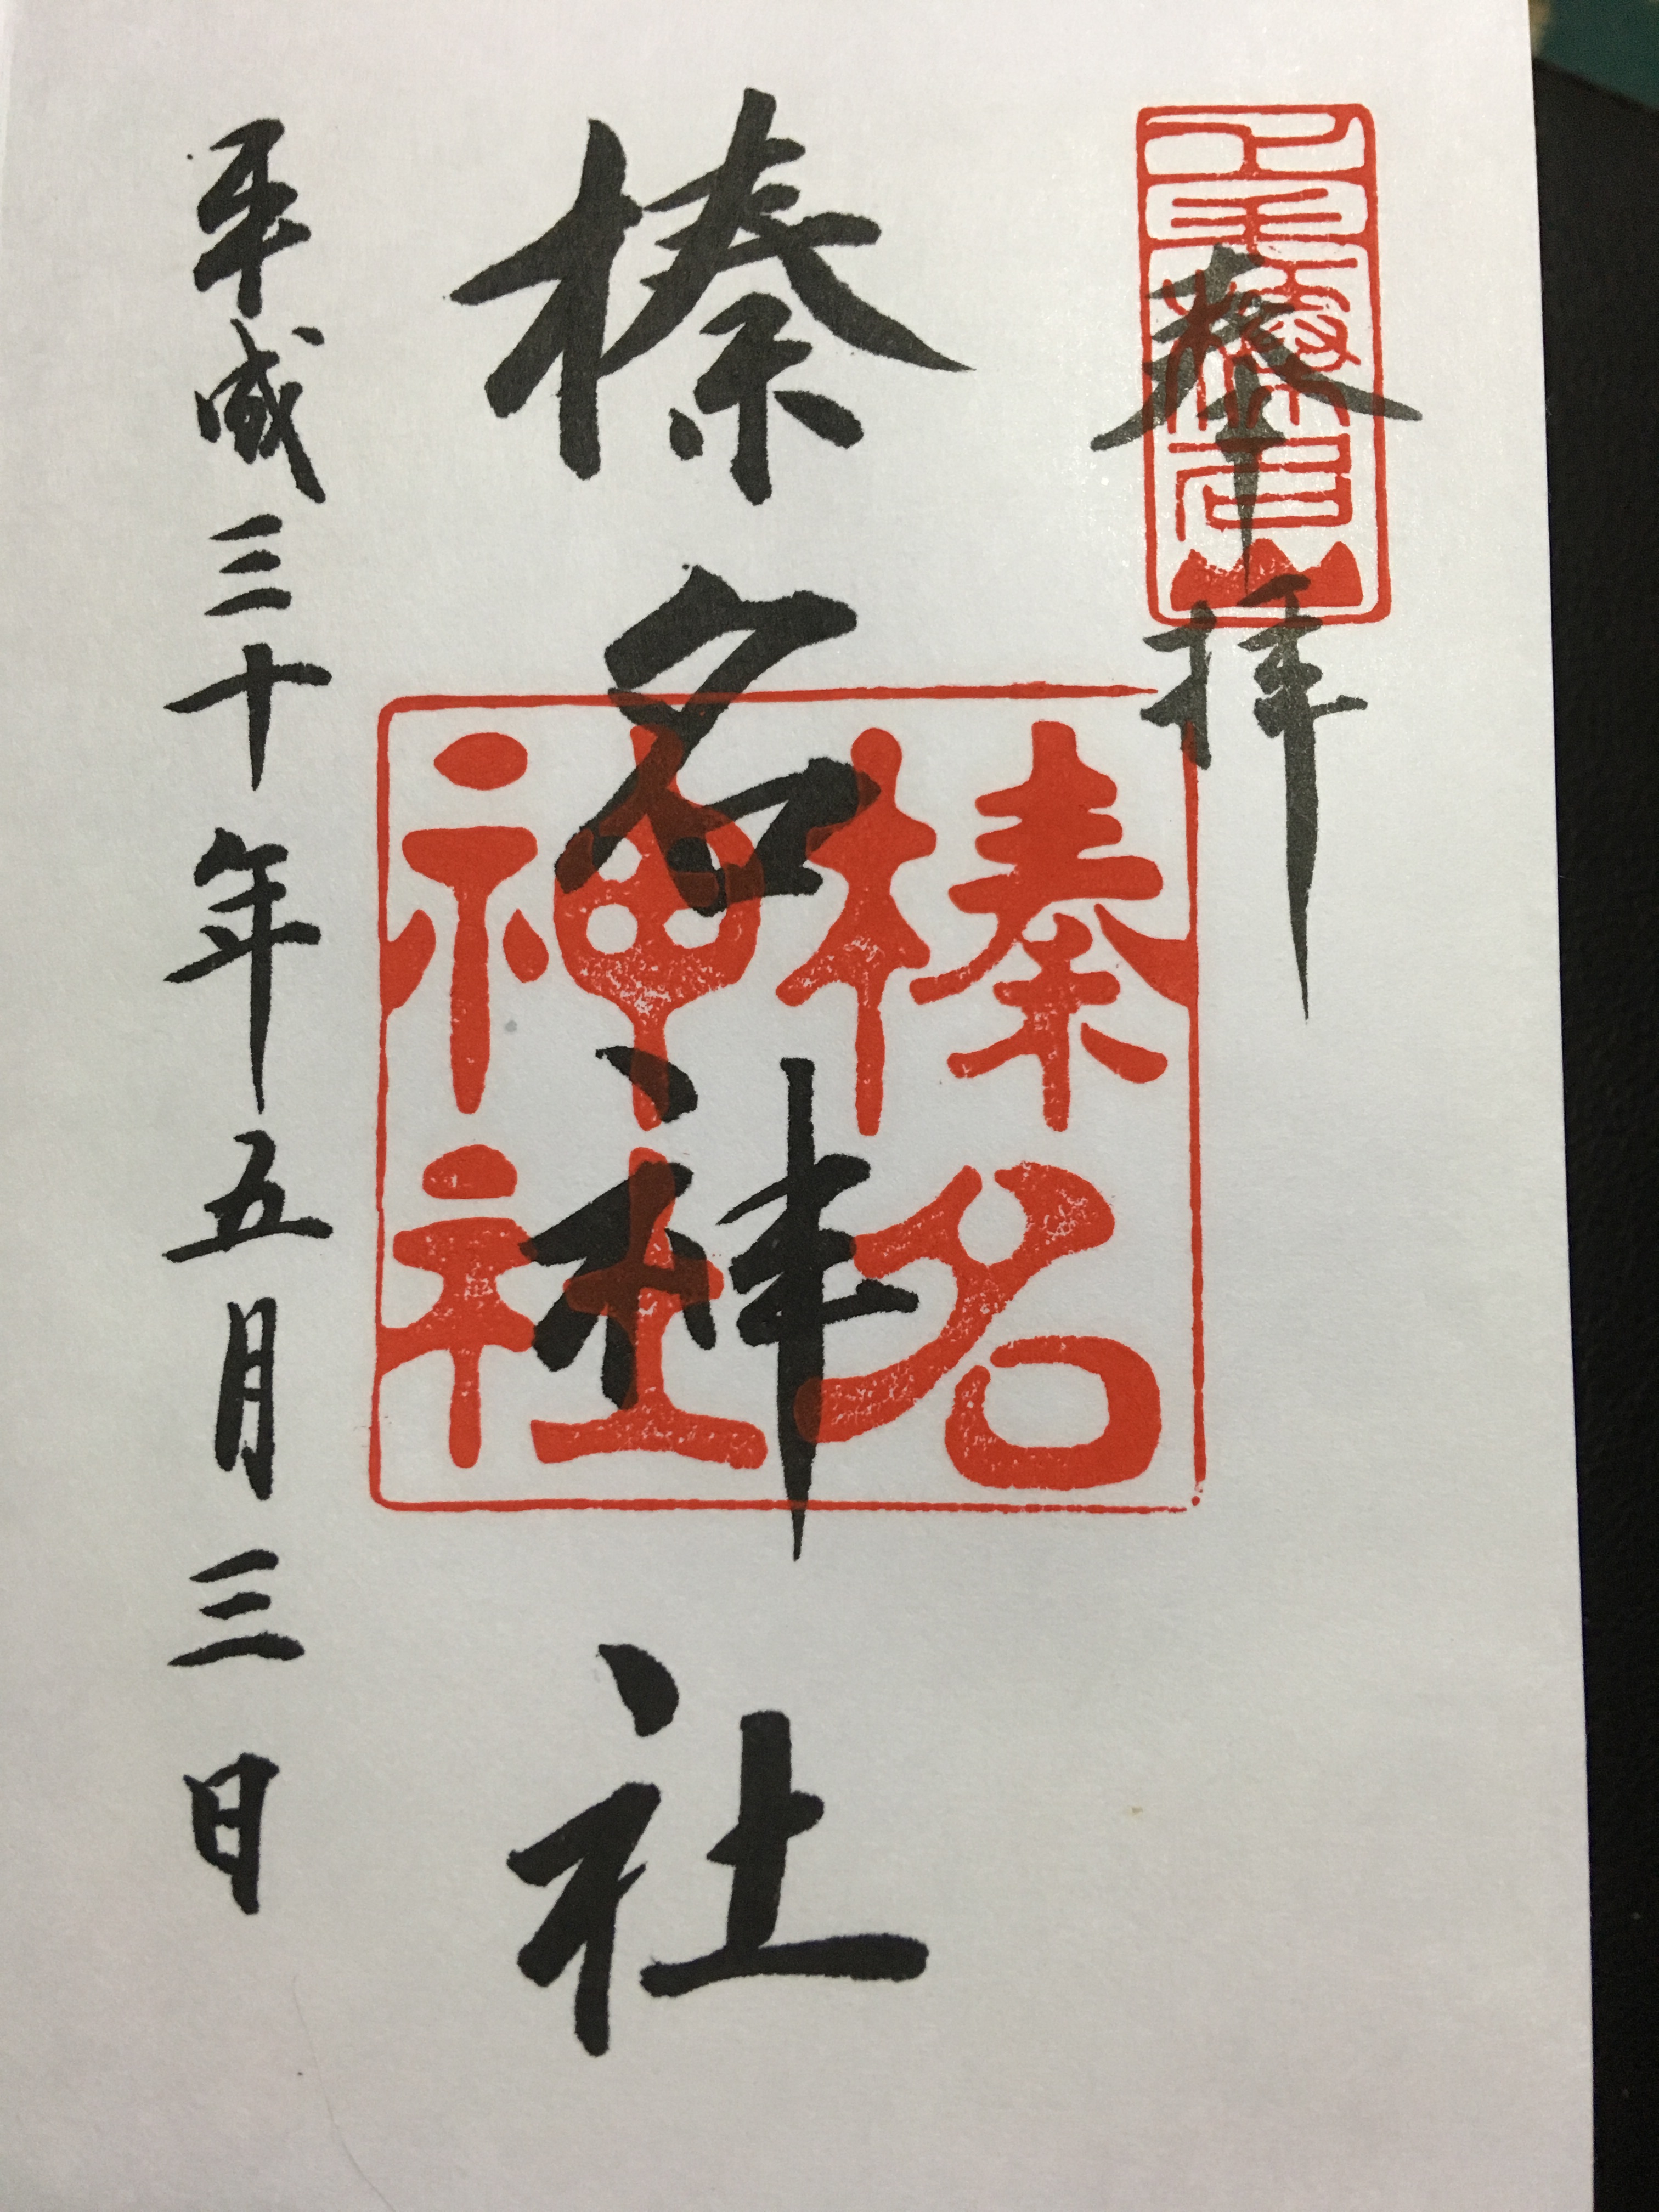 奉拝
上毛榛名山
榛名神社
榛名
神社
平成三十年五月三日